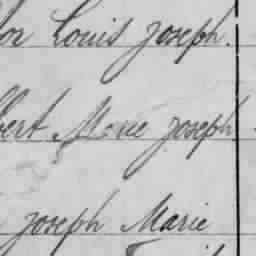 Louis Joseph.
bert Marie Joseph
Joseph Marie